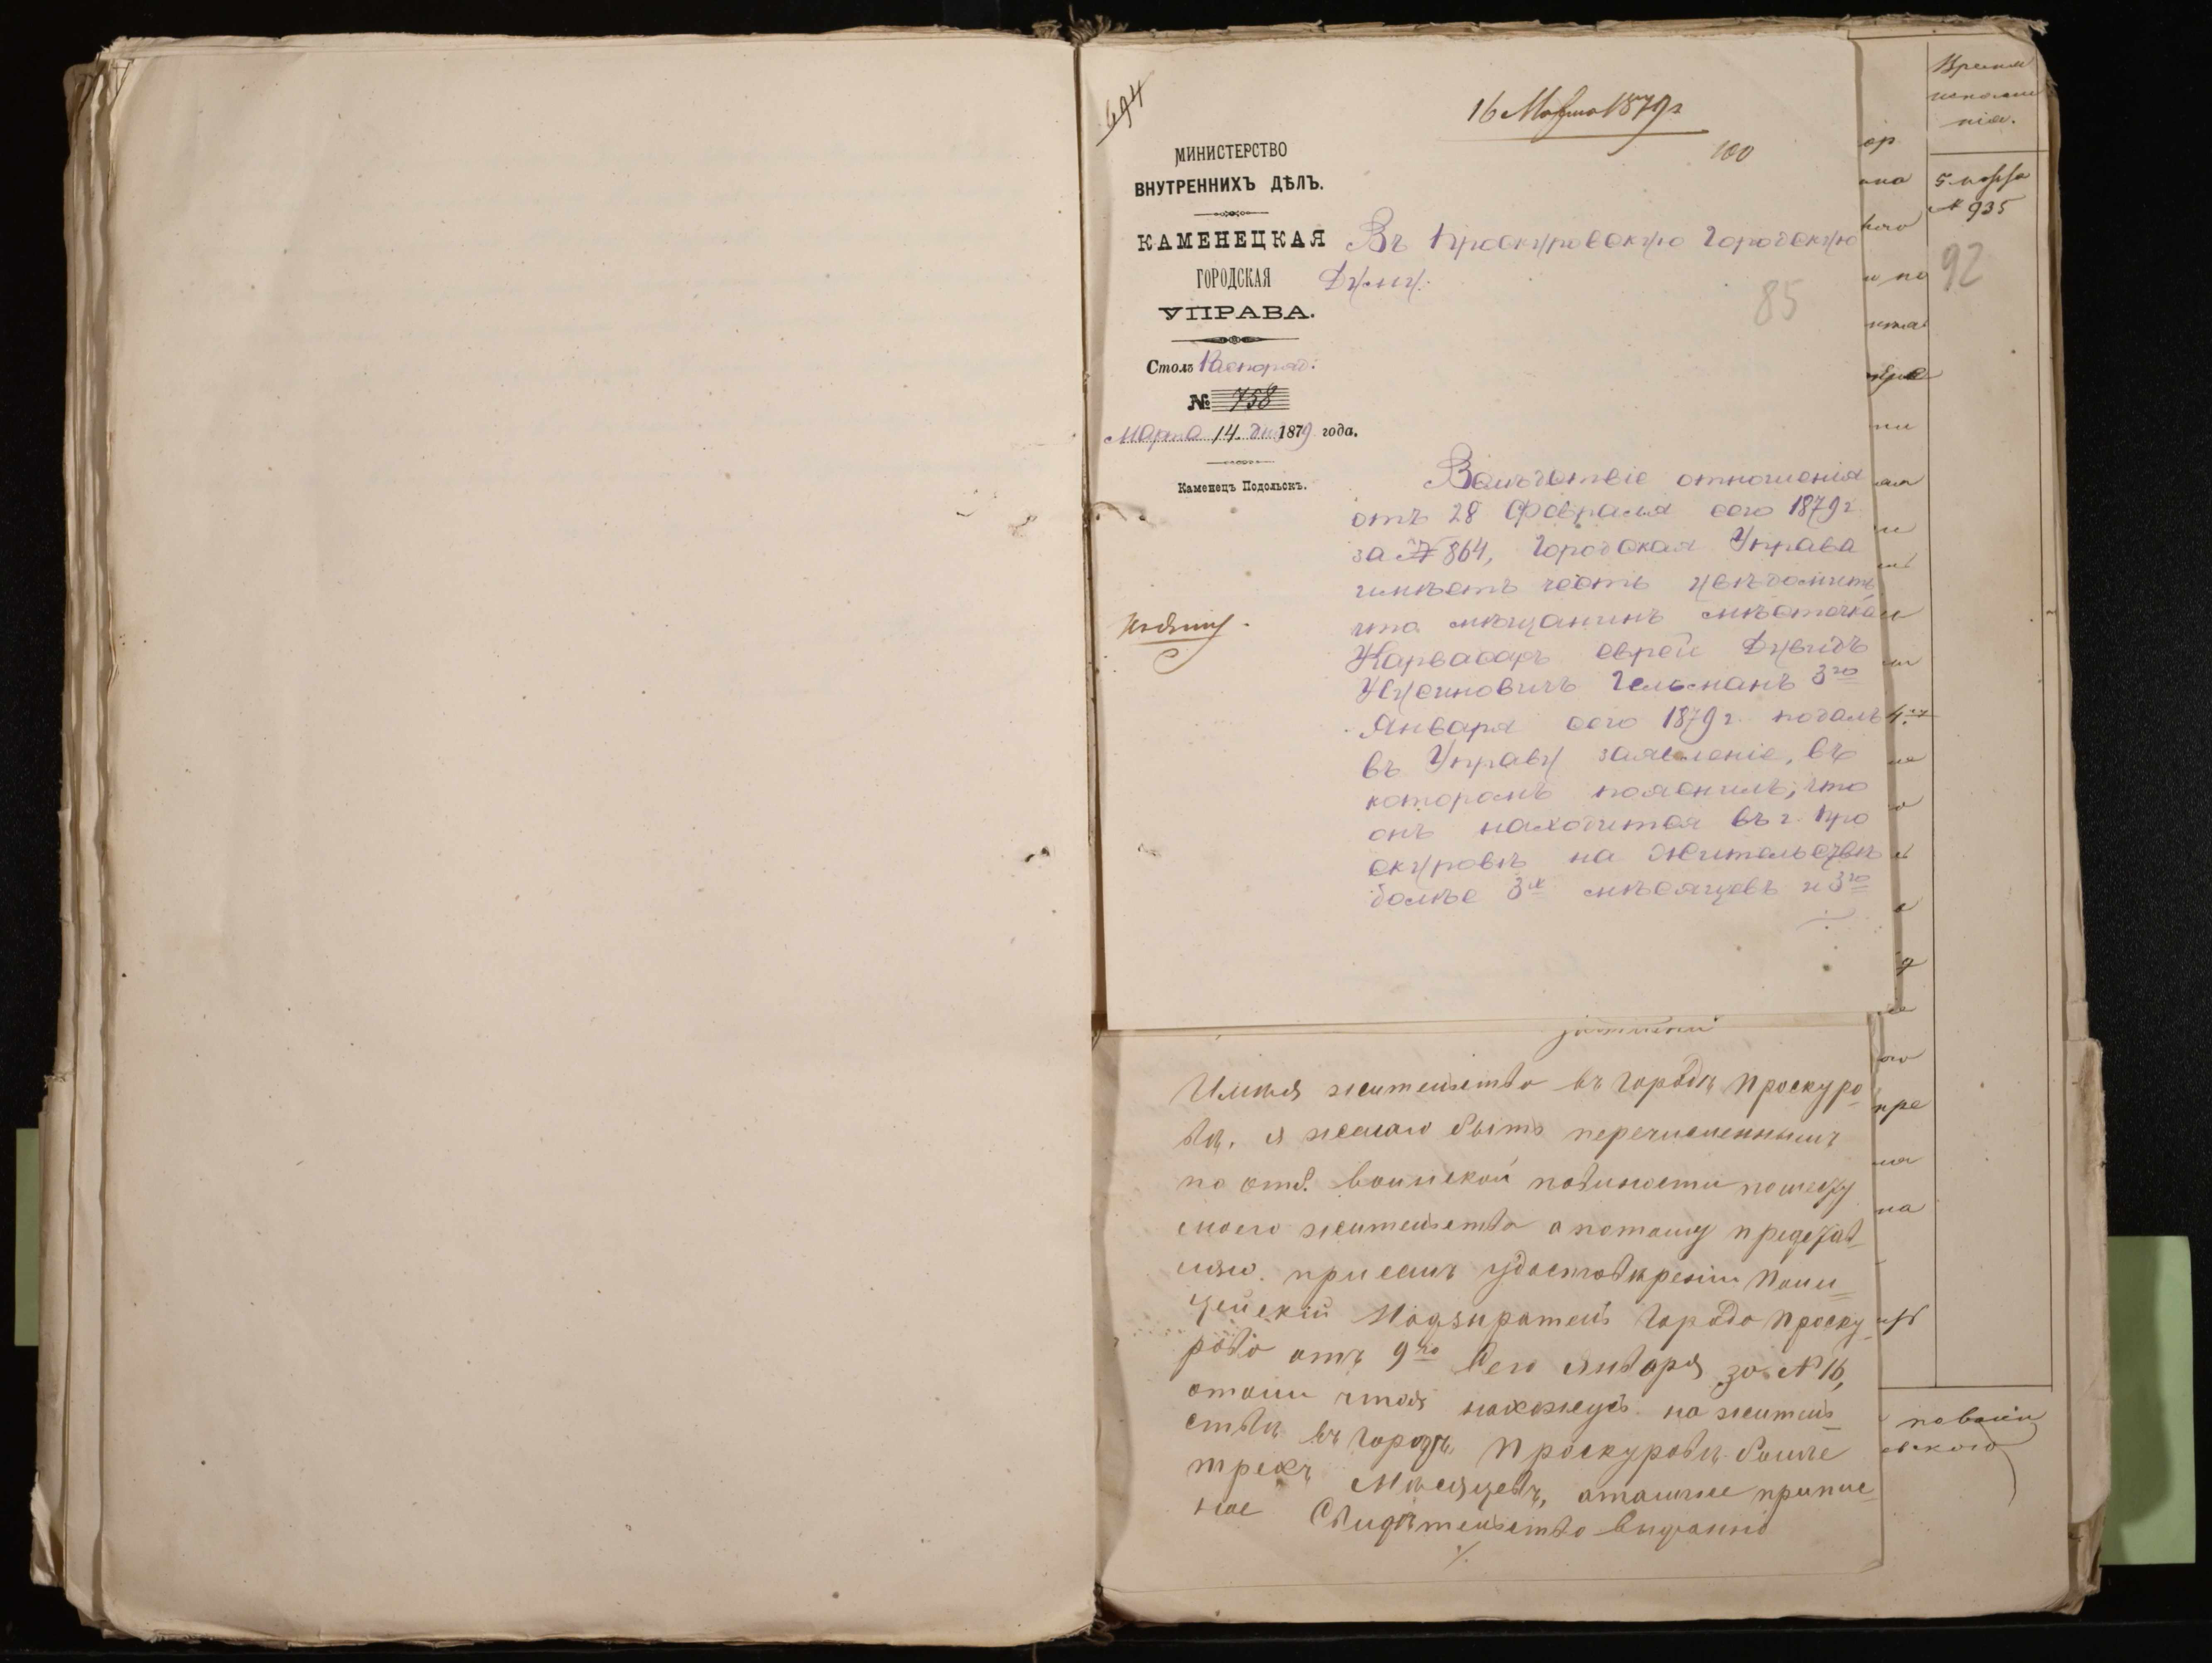 694
16 Марта 1879 г
100
МИНИСТЕРСТВО
ВНУТРЕННИХЪ ДѢЛЪ.
КАМЕНЕЦКАЯ
ГОРОДСКАЯ
УПРАВА.
Столъ Распоряд:
№ 758
Марта 14 дня 1879 года.
Каменецъ Подольскъ.
Въ Проскуровскую Городскую
Думу.
85
Вслѣдствіе отношенія
отъ 28 Февраля сего 1879 г
за № 864, Городская Управа
имѣетъ честь увѣдомить
что мѣщанинъ мѣстечка
Карвасаръ еврей Дувидъ
Гельманъ 3го
Января сего 1879 г. подалъ
въ Управу заявленіе, въ
которомъ пояснилъ, что
онъ находится въ г. Про
скуровѣ на жительствѣ
болѣе 3х мѣсяцевъ и 3го
Имѣя жительство въ городѣ Проскуро
вѣ, я желаю быть перечисленнымъ
по отб. воинской повинности по месту
моего жительства а потому представ
ляю при семъ удостовѣреніи Поли
цейскій Надзиратель города Проску
рова отъ 9го сего Января за № 16,
отомъ что я нахожусь на житель
ствѣ въ городѣ Проскуровѣ более
трехъ Мѣсяцевъ, а также припис
ное Свидѣтельство выданно
Время
исполне
нія.
5 марта
№ 935
92